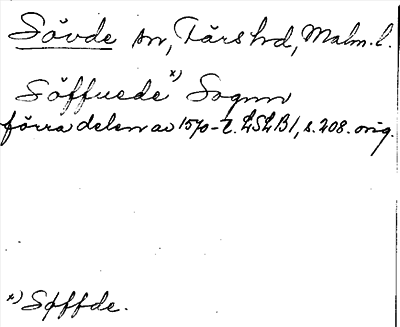 Sövde sn, Färs hd, Malm. l.
Söffuede x) Sognn
förra delen av 1570-t. LSLB1, s. 208. orig.
x) Søffde.